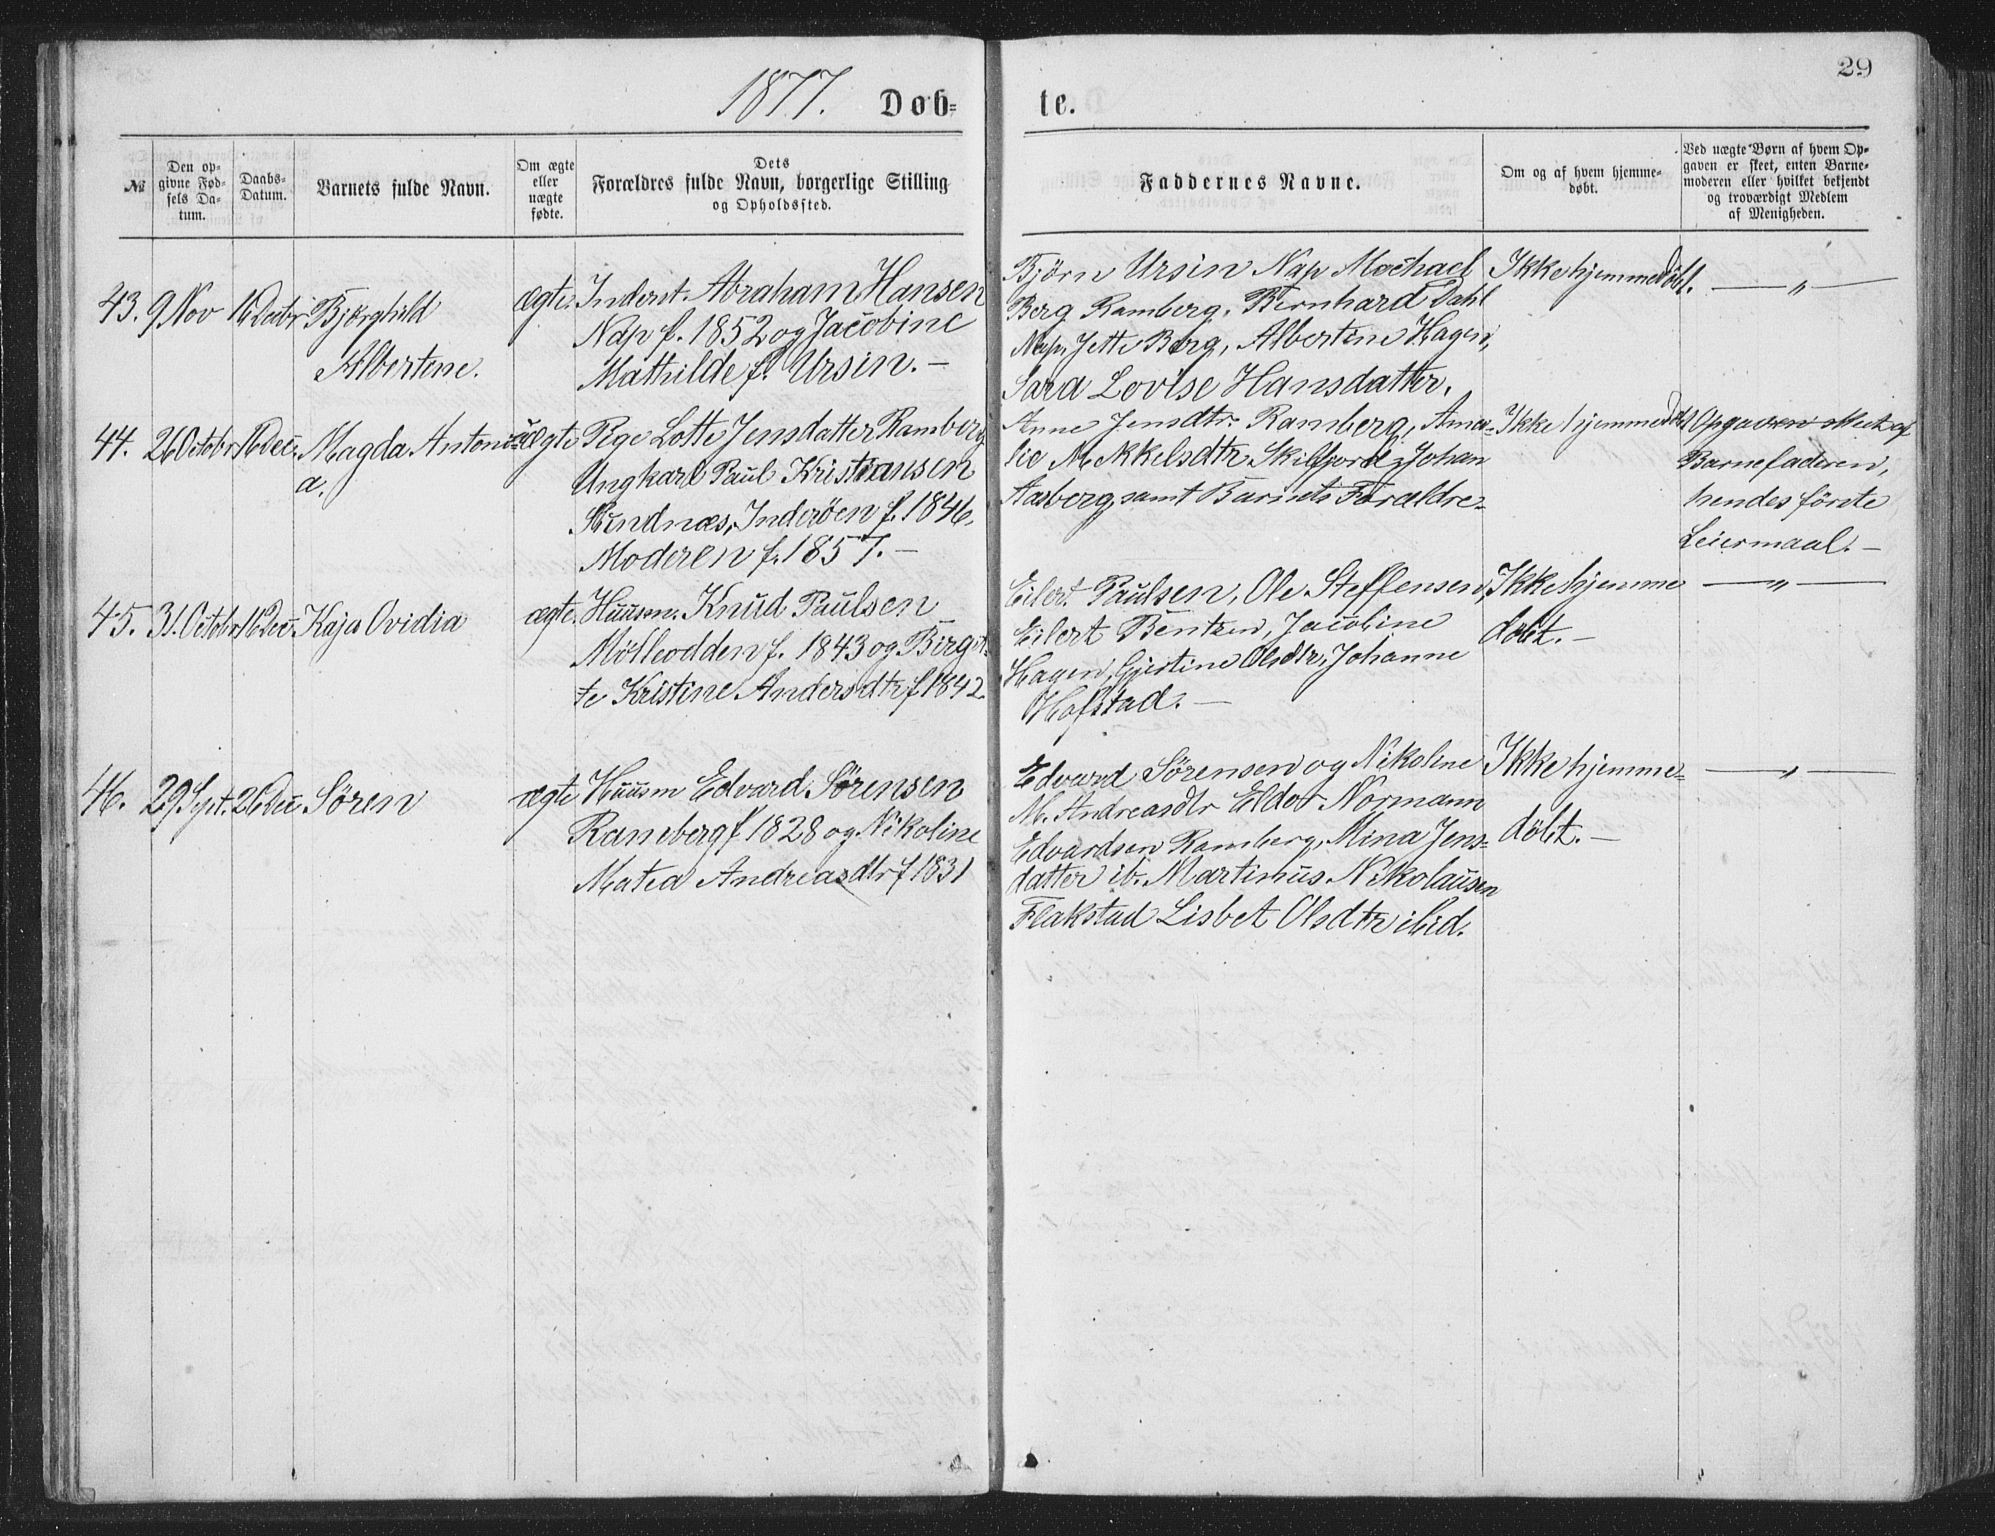 29
1877. Døb-
te.
№
Den op-
givne Fød-
sels Da-
tum.
Daabs-
Datum.
Barnets fulde Navn.
Om ægte
eller
uægte
fødte.
Dets
Forældres fulde Navn, borgerlige Stilling
og Opholdssted.
Faddernes Navne.
Om og af hvem hjemme-
døbt.
Ved uægte Børn af hvem Op-
gaven er skeet, enten Barne-
moderen eller hvilket bekjendt
og troværdigt Medlem
af Menigheden.
43. 9 Nov 16 Decbr Bjørghild
Albertine.
ægte. Inderst. Abraham Hansen
Nap f. 1852 og Jacobine
Mathilde f. Ursin. —
Björn Ursin Nap Mechael
Berg Ramberg, Bernhard Dahl
Nap, Jette Berg, Albertine Hagen,
Sara Lovise Hansdatter.
Ikke hjemmedöbt. — „ —
44. 26 Octobr 16 Dec. Magda Antoni-
a.
uægte Pige Lotte Jensdatter Ramberg
Ungkarl Paul Kristiansen
Inderöen f. 1846.
Moderen f. 1857. —
Anne Jensdtr. Ramberg, Ama-
lie Mekkelsdtr Skilfjord, Johan
Aasberg, samt Barnets Forældre-
Ikke hjemmedöbt
Opgaven skeet af
Barnefaderen,
hendes förste
Leiermaal. —
45. 31. Octobr 16 Dec. Kaja Ovidia
ægte. Huusm. Knud Paulsen
Mölleodden f. 1843 og Birgit-
te Kristine Andersdtr f. 1842.
Eilert Paulsen, Ole Steffensen,
Eilert Bentzen, Jacobine
Hagen, Gjertine Olsdtr, Johanne
Hofstad. —
Ikke hjemme
döbt. —
— „ —
46. 29 Sept. 26 Dec Sören
ægte Huusm Edvard Sörensen
Raneberg f 1828 og Nikoline
Matea Andreasdtr f 1831
Edvard Sörensen og Nikoline
M. Andreasdtr Eldor Normann
Edvardsen Ramberg, Mina Jens-
datter ib. Martinus Nikolausen
Flakstad Lisbet Olsdtr ibid.
Ikke hjemme-
döbt. —
— „ —